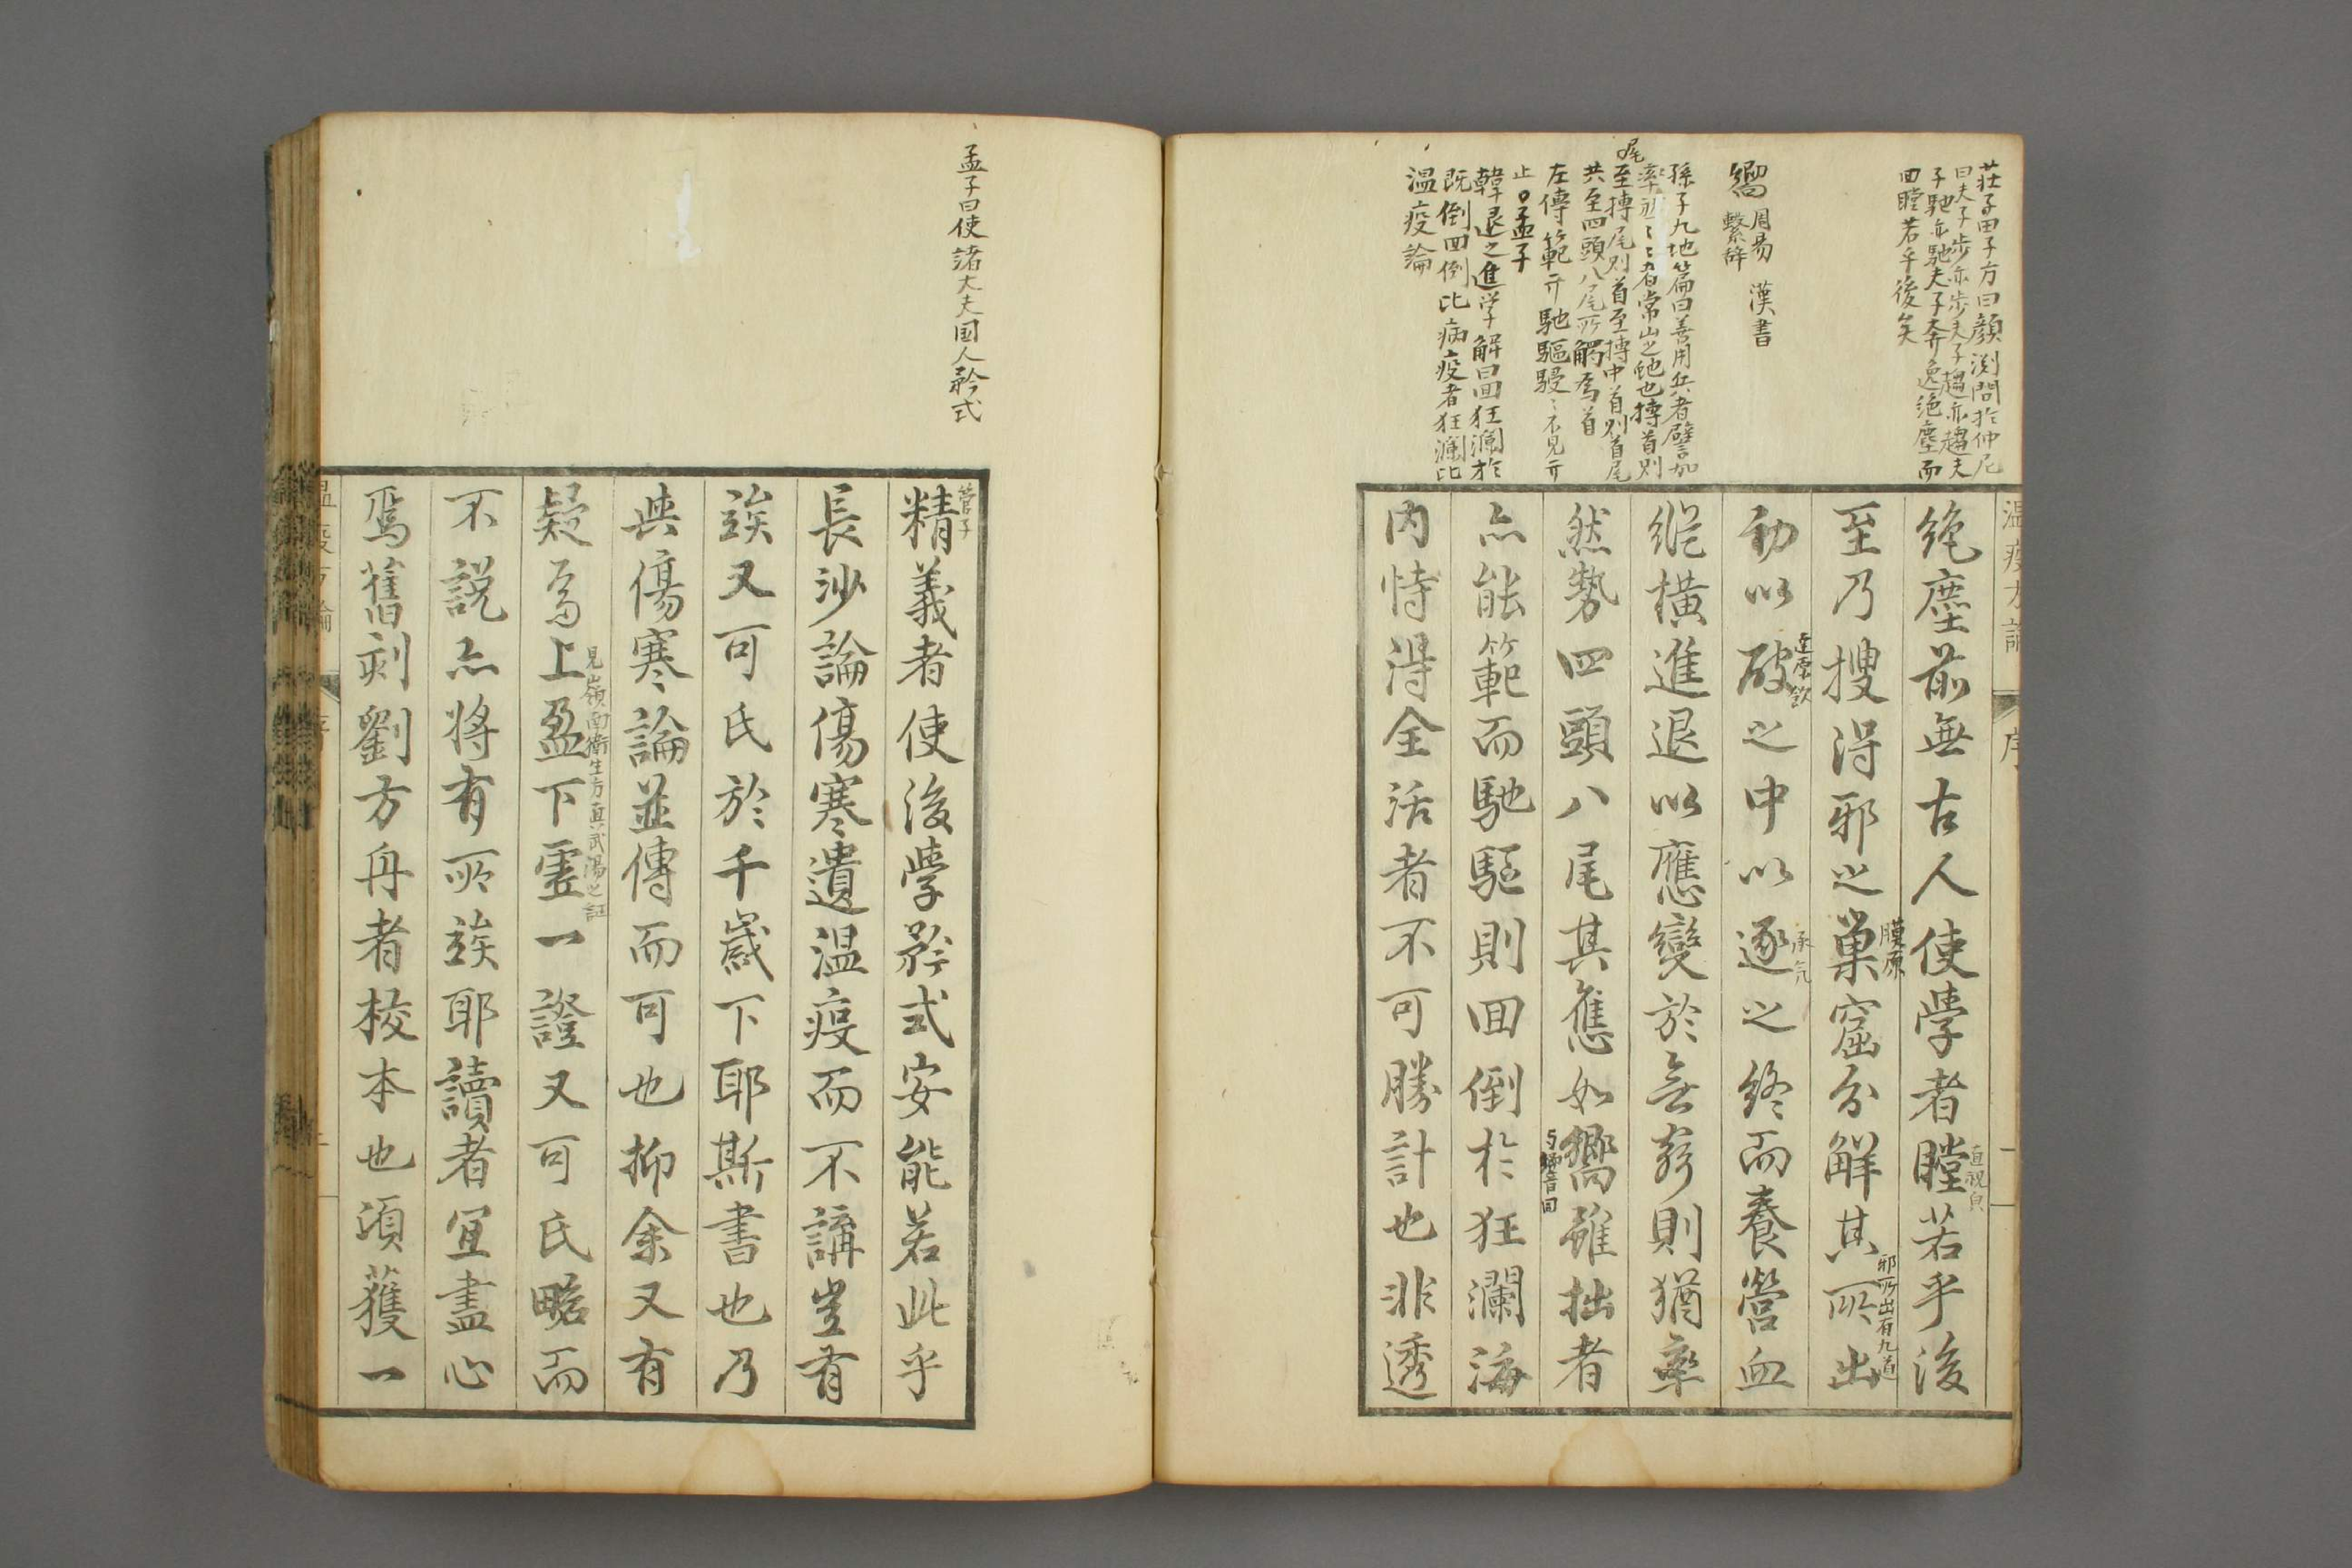 莊子田子方曰顏渕問於仲尼
曰夫子步亦步夫子趨亦趨夫
子馳亦馳夫子奔逸絶塵而
回瞠若乎後矣
嚮 周易 漢書
繫辞
孫子九地篇曰善用兵者譬如
率然者常山之虵也摶首則
尾
至摶尾則首至摶中首則首尾
共至四頭八尾所觸為首
左傳範
馳驅
止。孟子
韓退之進学解曰回狂瀾於
既倒回倒比病疫者狂瀾比
温疫論
温疫方論 序
絶塵前無古人使學者瞠若乎後
直視皃
膜原
邪所出有九道
至乃搜得邪之巢窟分解其所出
達原飲
承気
動以破之中以逐之終而養營血
縱橫進退以應變於無窮則猶率
然勢四頭八尾其應如嚮雖拙者
与響音同
亦能範而馳驅則回倒於狂瀾海
内恃得全活者不可勝計也非透
孟子曰使諸大夫国人矜式
管子
精義者使後學矜式安能若此乎
長沙論傷寒遺温疫而不講豈有
竢又可氏於千歲下耶斯書也乃
與傷寒論並傳而可也抑余又有
見嶺南衛生方真武湯之証
疑焉上盈下虚一證又可氏畧而
不説亦將有所竢耶讀者宜盡心
焉舊刻劉方舟者校本也頃獲一
温疫方論 序